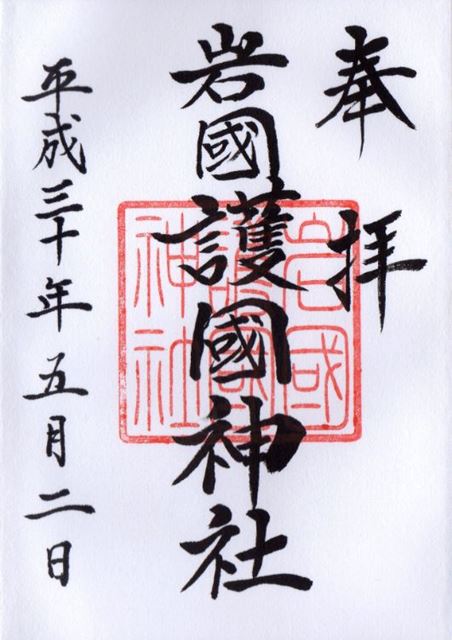 奉拝
岩國護國神社
平成三十年五月二日
岩國
護國
神社